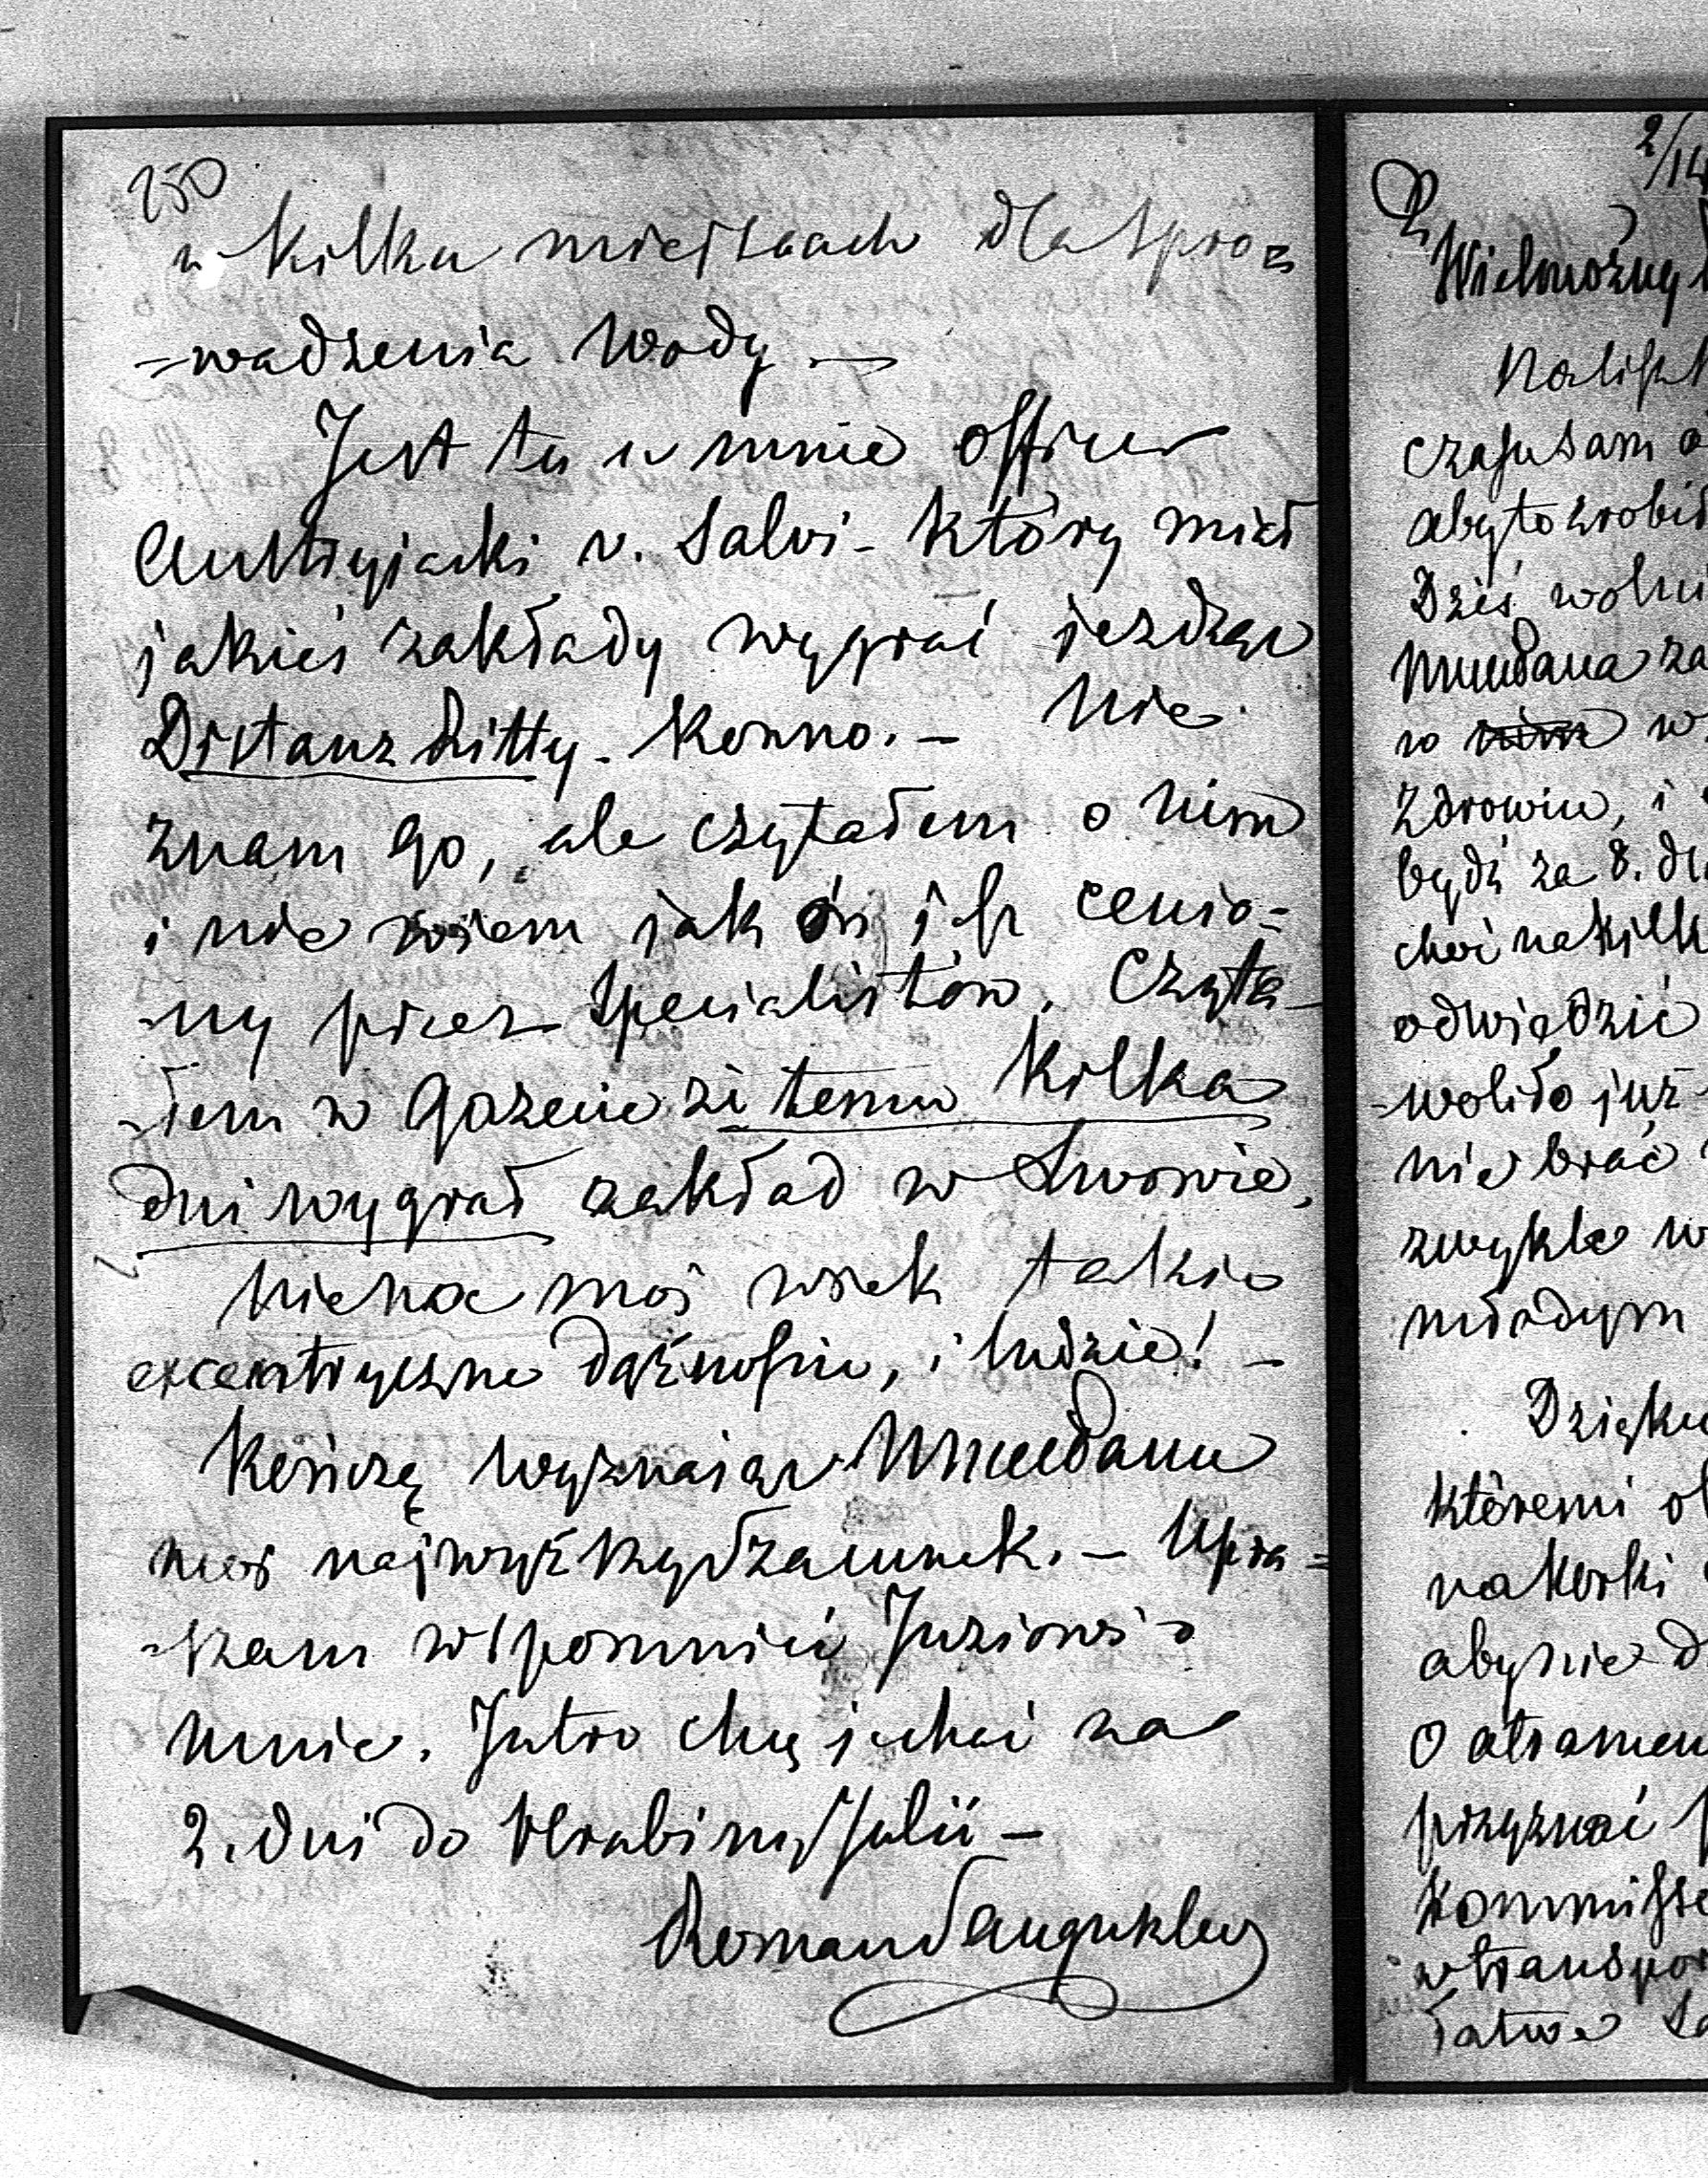 250
w kilku miejscach dla spro=
=wadzenia wody —
Jest tu u mnie officer
Austryjacki v. Salvi - który miał
jakieś zakłady wygrać jeżdżąc
Distanz Ritty - konno. — Nie
znam go, ale czytałem o nim
i nie wiem jak on jest cenio=
-ny przez specialistów. Czyta-
-łem w gazecie że temu kilka
dni wygrał zakład w Lwowie,
Nie na mój wiek takie
excentryczne dążności, i ludzie! —
Kończę wyznając
mój najwyższy szacunek. — Upra=
-szam wspomnieć Juziowi o
mnie. Jutro chcę jechać na
2. dni do Hrabiny Julii —
Roman Sanguszko
2/14
Wielmożny
czasu sam
aby to zrobił
Dziś
za
w nim w
Zdrowiu, i
bądź za 8.
choć na kilk
odwiedzić
-woliło już
nie brać
zwykle w
młodym
Dzięku
któremi
abynie d
O atramen
przyznać
Kommisse
w transpor
łatwo